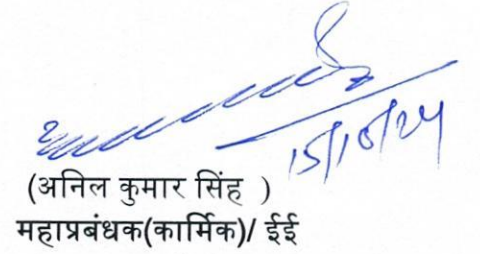 15/10/24
(अनिल कुमार सिंह )
महाप्रबंधक(कार्मिक)/ ईई